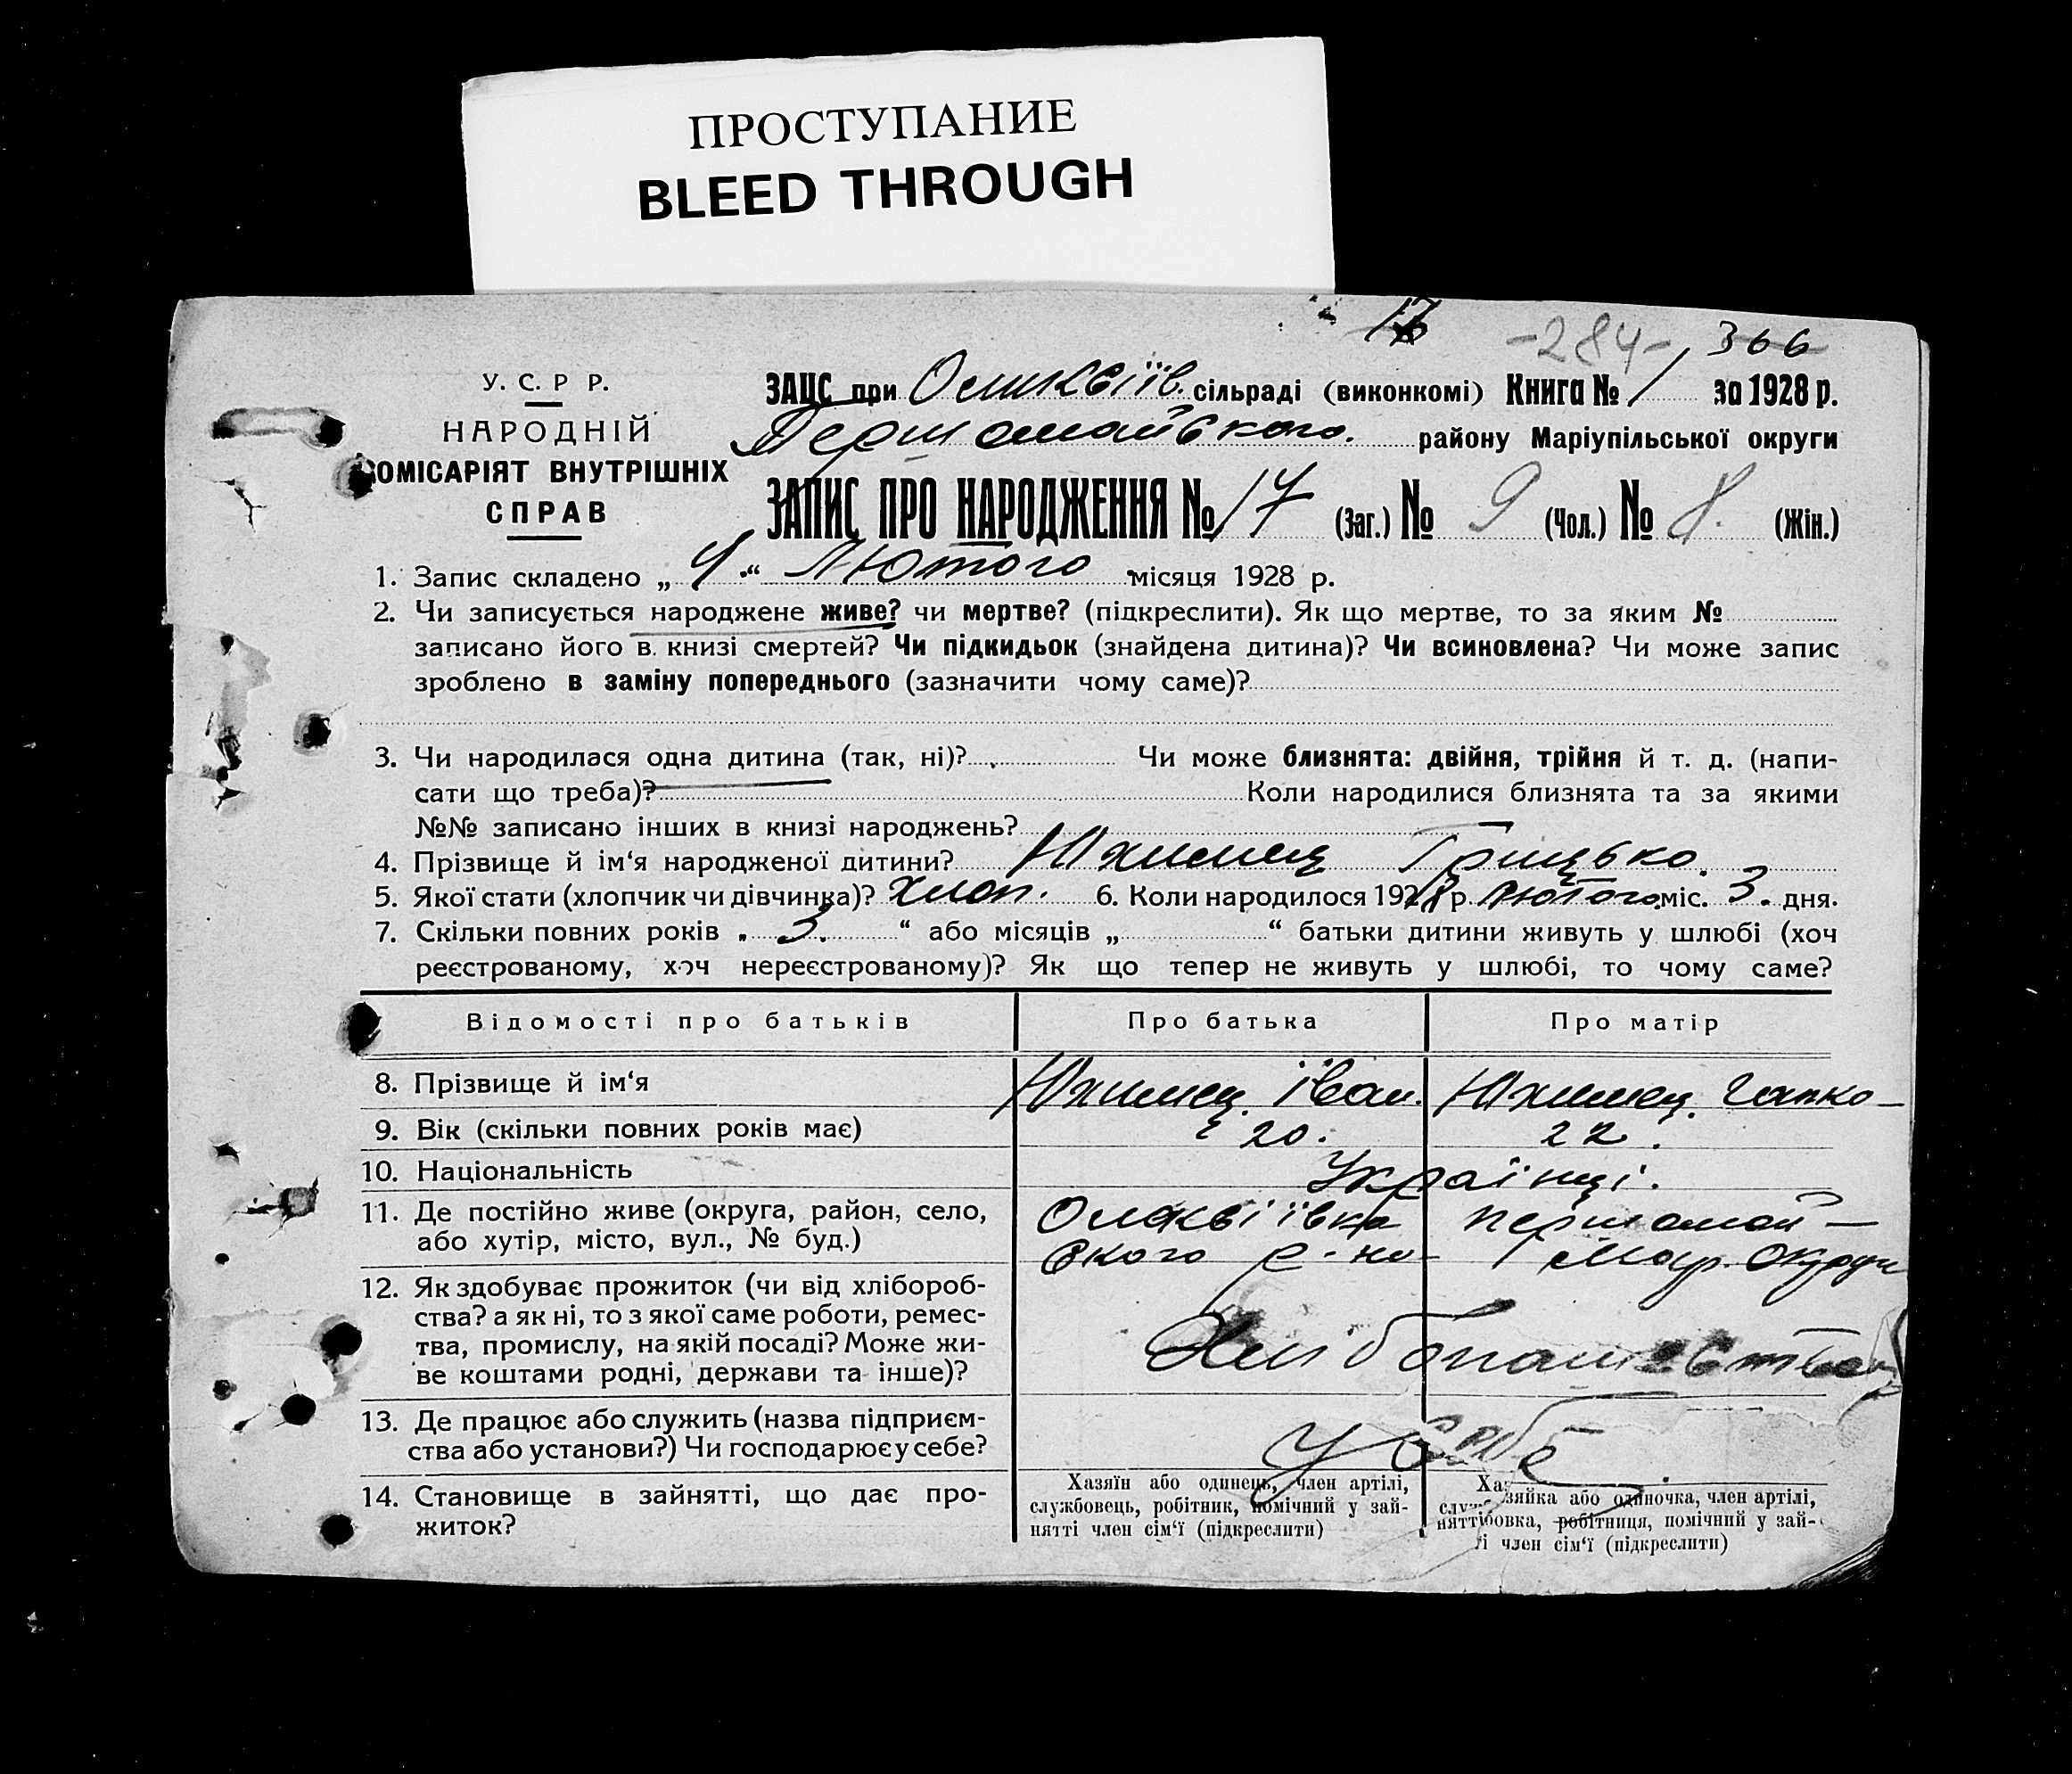 ПРОСТУПАНИЕ
BLEED THROUGH
-284- 366
У. С. Р Р.
НАРОДНІЙ
КОМІСАРІЯТ ВНУТРІШНІХ
СПРАВ
ЗАЦС при сільраді (виконкомі) Книга № 1 за 1928 р.
Першомайського. району Маріупільської округи
ЗАПИС ПРО НАРОДЖЕННЯ № 17 (Заг.) № 9 (Чол.) № 8. (Жін.)
1. Запис складено „ 4 “ Лютого місяця 1928 р.
2. Чи записується народжене живе? чи мертве? (підкреслити). Як що мертве, то за яким №
записано його в. книзі смертей? Чи підкидьок (знайдена дитина)? Чи всиновлена? Чи може запис
зроблено в заміну попереднього (зазначити чому саме)?
3. Чи народилася одна дитина (так, ні)? Чи може близнята: двійня, трійня й т. д. (напи-
сати що треба)? Коли народилися близнята та за якими
№№ записано інших в книзі народжень?
4. Прізвище й ім‘я народженої дитини? Юхимец Грицько.
5. Якої стати (хлопчик чи дівчинка)? Хлоп. 6. Коли народилося 1928 р. Лютого міс. 3. дня.
7. Скільки повних років „ 3. “ або місяців „ “ батьки дитини живуть у шлюбі (хоч
реєстрованому, хоч нереєстрованому)? Як що тепер не живуть у шлюбі, то чому саме?
Відомості про батьків Про батька Про матір
8. Прізвище й ім‘я Юхимец. Іван. Юхимец. Гапка
9. Вік (скільки повних років має) 20. 22.
10. Національність Українці.
11. Де постійно живе (округа, район, село,
або хутір, місто, вул., № буд.)
Першомай-
ського р-на Мар. Округи
12. Як здобуває прожиток (чи від хлібороб-
ства? а як ні, то з якої саме роботи, ремес-
тва, промислу, на якій посаді? Може жи-
ве коштами родні, держави та інше)?
13. Де працює або служить (назва підприєм-
ства або установи?) Чи господарює у себе?
У себе.
14. Становище в зайнятті, що дає про-
житок?
Хазяїн або одинець, член артілі,
службовець, робітник, помічний у зай-
нятті член сім‘ї (підкреслити)
Хазяйка або одиночка, член артілі,
службовка, робітниця, помічний у зай-
нятті член сім‘ї (підкреслити)